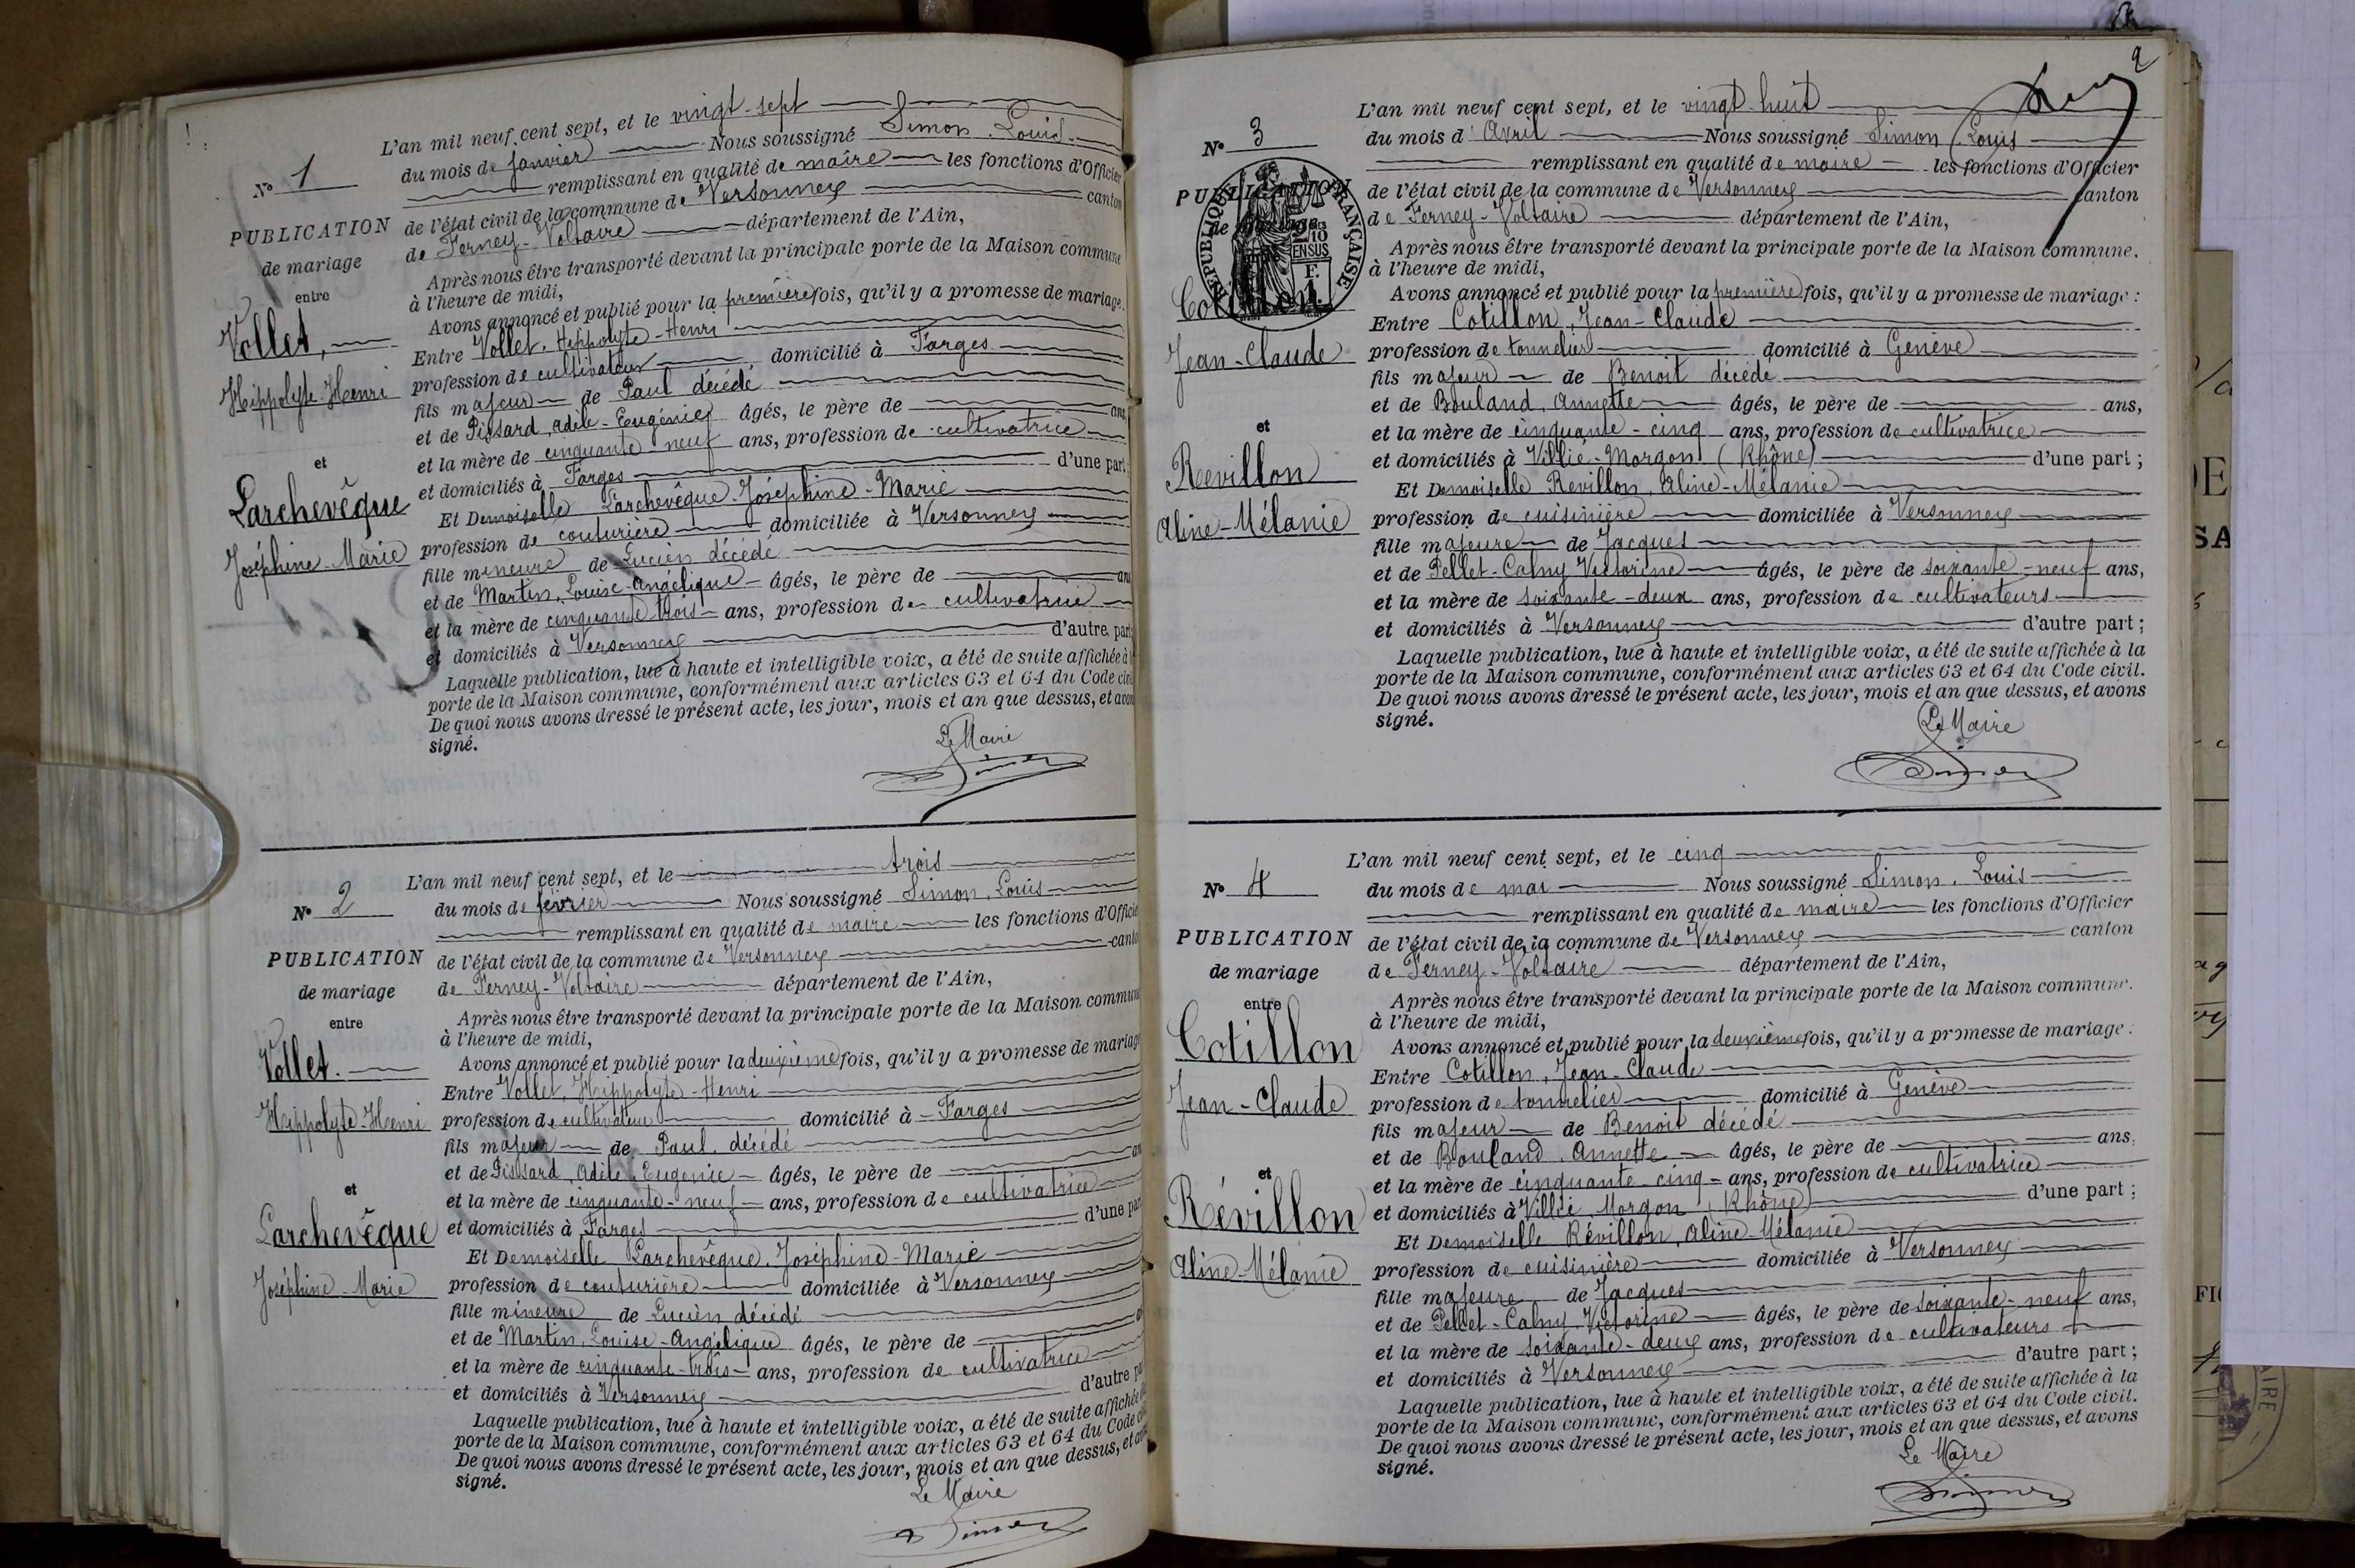 N° 1
PUBLICATION
de mariage
entre
Vollet,
Hippolyte-Henri
et
Larchevêque
Joséphine-Marie
L'an mil neuf cent sept, et le vingt-sept
du mois de janvier Nous soussigné Simon Louis
remplissant en qualité de maire les fonctions d'Officier
de l'état civil de la commune de Versonnex canton
de Ferney-Voltaire département de l'Ain,
Après nous être transporté devant la principale porte de la Maison commune
à l'heure de midi,
Avons annoncé et publié pour la première fois, qu'il y a promesse de mariage.
Entre Vollet, Hippolyte-Henri
profession de cultivateur domicilié à Farges
fils majeur de Paul décédé
et de Pissard, Adèle-Eugénie âgés, le père de ans,
et la mère de cinquante-neuf ans, profession de cultivatrice
et domiciliés à Farges d'une part;
Et Demoiselle Larchevêque Joséphine-Marie
profession de couturière domiciliée à Versonnex
fille mineure de Lucien décédé
et de Martin, Louise-Angélique âgés, le père de ans
et la mère de cinquante trois ans, profession de cultivatrice
et domiciliés à Versonnex d'autre part
Laquelle publication, lue à haute et intelligible voix, a été de suite affichée à
porte de la Maison commune, conformément aux articles 63 et 64 du Code civil
De quoi nous avons dressé le présent acte, les jour, mois et an que dessus, et avons
signé.
Le Maire
Simon
N° 2
PUBLICATION
de mariage
entre
Vollet.
Hippolyte-Henri
et
Larchevêque
Joséphine-Marie
L'an mil neuf cent sept, et le trois
du mois de février Nous soussigné Simon, Louis
remplissant en qualité de maire les fonctions d'Officier
de l'état civil de la commune de Versonnex canton
de Ferney-Voltaire département de l'Ain,
Après nous être transporté devant la principale porte de la Maison commune
à l'heure de midi,
Avons annoncé et publié pour la deuxième fois, qu'il y a promesse de mariage
Entre Vollet, Hippolyte-Henri
profession de cultivateur domicilié à Farges
fils majeur de Paul, décédé
et de Pissard, Adèle Eugénie âgés, le père de ans
et la mère de cinquante-neuf ans, profession de cultivatrice
et domiciliés à Farges d'une part
Et Demoiselle Larchevêque, Joséphine-Marie
profession de couturière domiciliée à Versonnex
fille mineure de Lucien décédé
et de Martin, Louise-Angélique âgés, le père de
et la mère de cinquante-trois ans, profession de cultivatrice
et domiciliés à Versonnex d'autre part
Laquelle publication, lue à haute et intelligible voix, a été de suite affichée
porte de la Maison commune, conformément aux articles 63 et 64 du Code
De quoi nous avons dressé le présent acte, les jour, mois et an que dessus, et avons
signé.
Le Maire
Simon
2
N° 3
PUBLICATION
de mariage
RÉPUBLIQUE FRANÇAISE
Cotillon
Jean-Claude
et
Revillon
Aline-Mélanie
L'an mil neuf cent sept, et le vingt-huit
du mois d'Avril Nous soussigné Simon Louis
remplissant en qualité de maire les fonctions d'Officier
de l'état civil de la commune de Versonnex canton
de Ferney-Voltaire département de l'Ain,
Après nous être transporté devant la principale porte de la Maison commune.
à l'heure de midi,
Avons annoncé et publié pour la première fois, qu'il y a promesse de mariage:
Entre Cotillon, Jean-Claude
profession de tonnelier domicilié à Genève
fils majeur de Benoit décédé
et de Bouland, Annette âgés, le père de ans,
et la mère de cinquante-cinq ans, profession de cultivatrice
et domiciliés à Villié-Morgon (Rhône) d'une part;
Et Demoiselle Revillon, Aline-Mélanie
profession de cuisinière domiciliée à Versonnex
fille majeure de Jacques
et de Pellet-Calny Victorine âgés, le père de soixante-neuf ans,
et la mère de soixante-deux ans, profession de cultivateurs
et domiciliés à Versonnex d'autre part;
Laquelle publication, lue à haute et intelligible voix, a été de suite affichée à la
porte de la Maison commune, conformément aux articles 63 et 64 du Code civil.
De quoi nous avons dressé le présent acte, les jour, mois et an que dessus, et avons
signé.
Le Maire
Simon
N° 4
PUBLICATION
de mariage
entre
Cotillon
Jean-Claude
et
Révillon
Aline-Mélanie
L'an mil neuf cent sept, et le cinq
du mois de mai Nous soussigné Simon, Louis
remplissant en qualité de maire les fonctions d'Officier
de l'état civil de la commune de Versonnex canton
de Ferney-Voltaire département de l'Ain,
Après nous être transporté devant la principale porte de la Maison commune.
à l'heure de midi,
Avons annoncé et publié pour la deuxième fois, qu'il y a promesse de mariage:
Entre Cotillon, Jean-Claude
profession de tonnelier domicilié à Genève
fils majeur de Benoit décédé
et de Bouland, Annette âgés, le père de ans,
et la mère de cinquante-cinq ans, profession de cultivatrice
et domiciliés à Villié Morgon (Rhône) d'une part;
Et Demoiselle Révillon, Aline Mélanie
profession de cuisinière domiciliée à Versonnex
fille majeure de Jacques
et de Pellet-Calny, Victorine âgés, le père de soixante-neuf ans,
et la mère de soixante-deux ans, profession de cultivateurs
et domiciliés à Versonnex d'autre part;
Laquelle publication, lue à haute et intelligible voix, a été de suite affichée à la
porte de la Maison commune, conformément aux articles 63 et 64 du Code civil.
De quoi nous avons dressé le présent acte, les jour, mois et an que dessus, et avons
signé.
Le Maire
Simon